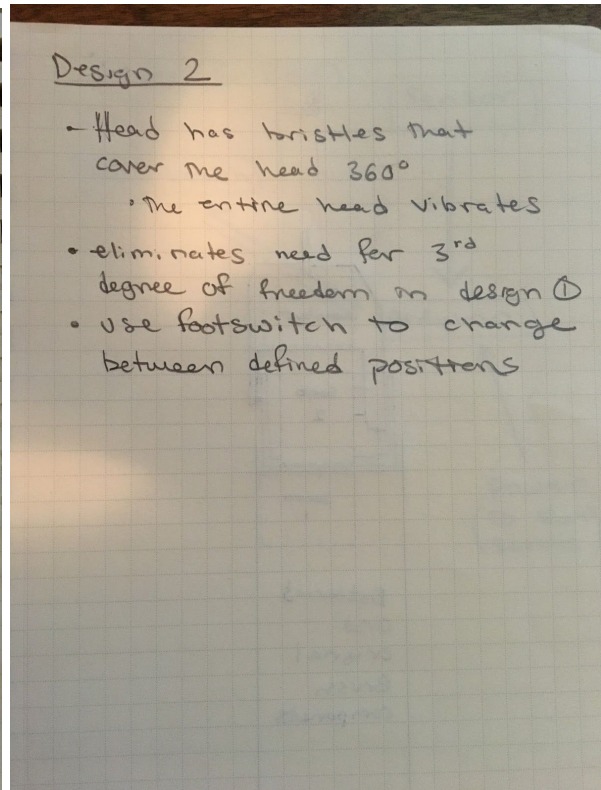 Design 2
- Head has bristles that
cover the head 360°
• The entire head vibrates
• eliminates need for 3rd
degree of freedom in design ①
• use footswitch to change
between defined positions